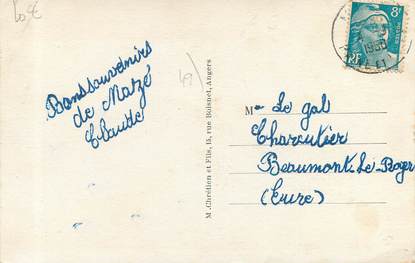 49)
8F
RF
1950
Bons souvenirs
de Mazé
Claude
M. Chrétien et Fils, 15, rue Boisnet, Angers
M Le gal
Charcutier
Beaumont-Le-Roger
(Eure)